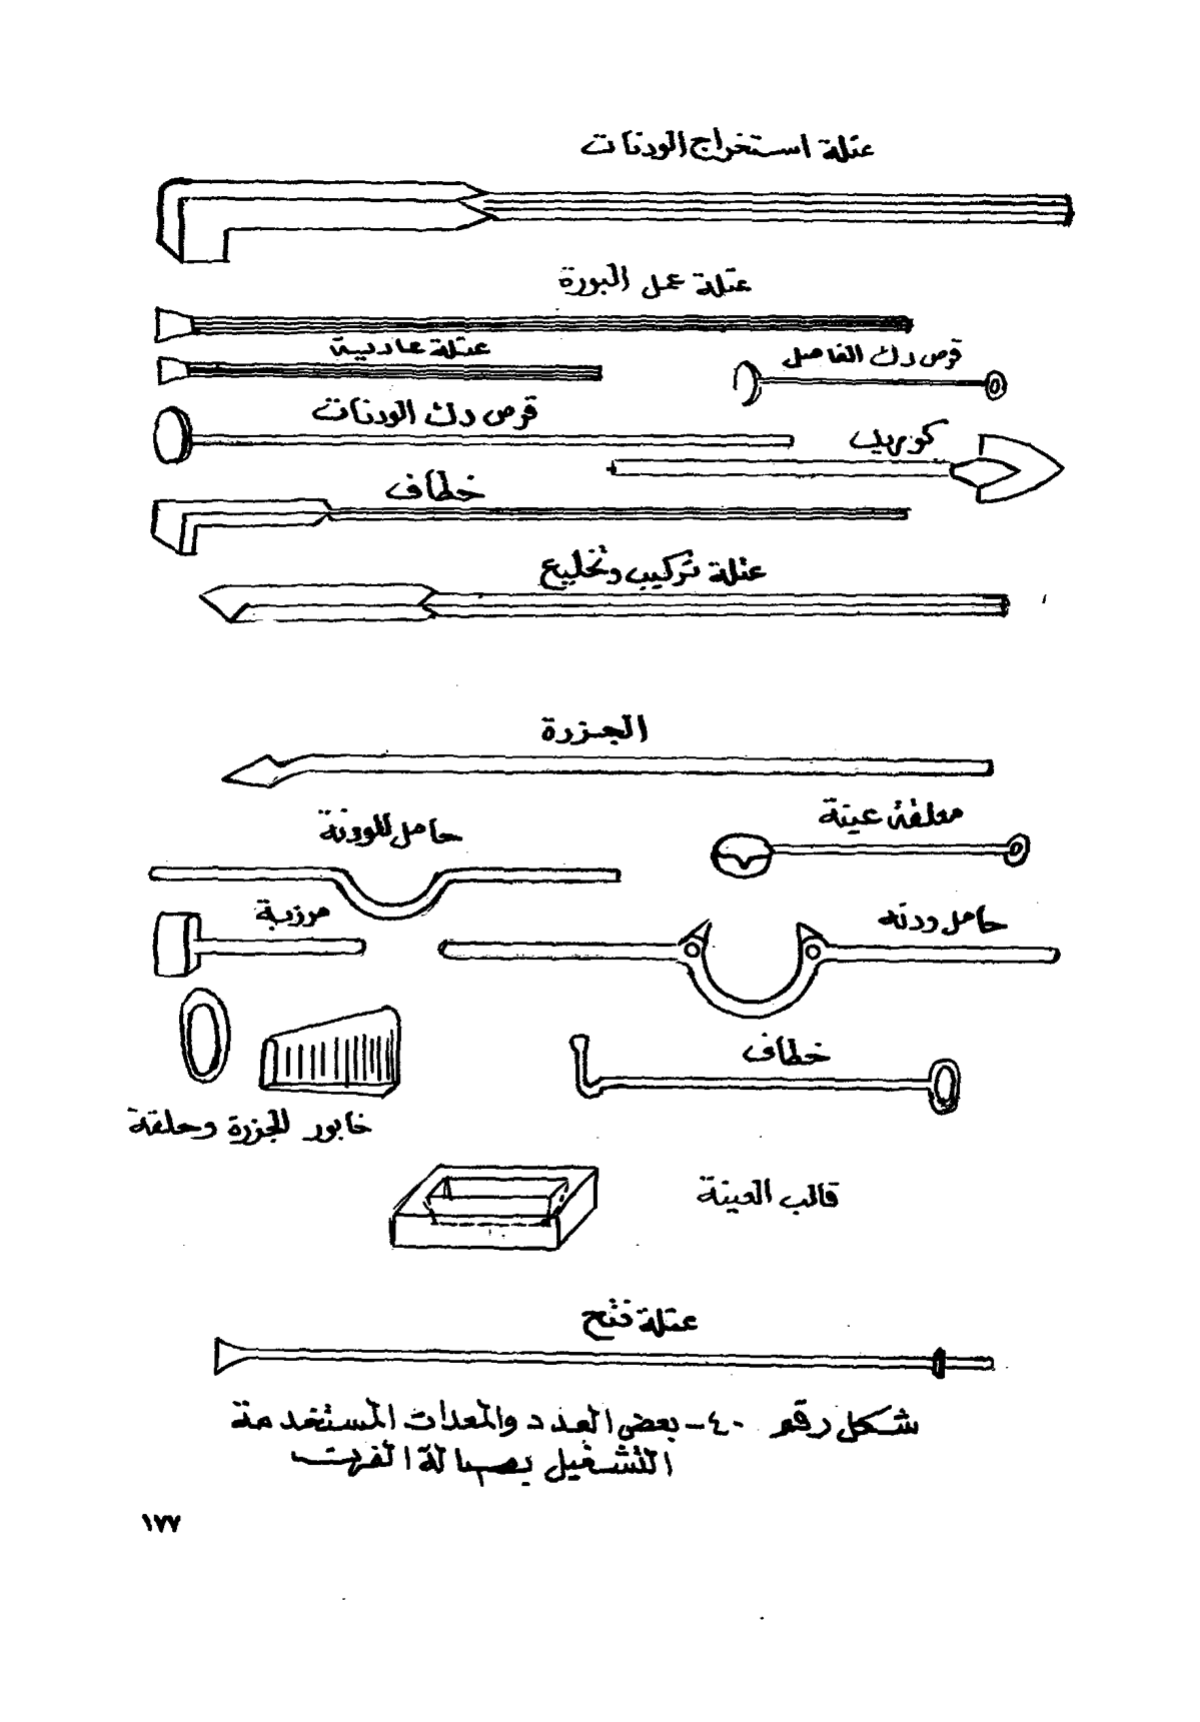 عتلة استخراج الودنات
عتلة عمل البورة
عتلة عادية
قرص دك الفاصل
قرص دك الودنات
كوريك
خطاف
عتلة تركيب وتخليع
الجزرة
معلقة عينة
حامل للودنة
حامل ودنه
مرزبة
خطاف
خابور للجزرة وحلقة
قالب العينة
عتلة فتح
شكل رقم ٤٠ - بعض العدد والمعدات المستخدمة
التشغيل بصالة الفرن
١٧٧